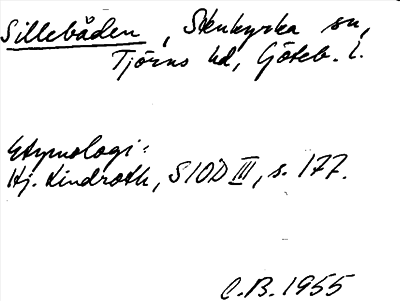 Sillebåden, Stenkyrka sn,
Tjörns hd, Göteb. l.
Etymologi:
Hj. Lindroth, SIOD III, s. 177.
C.B. 1955